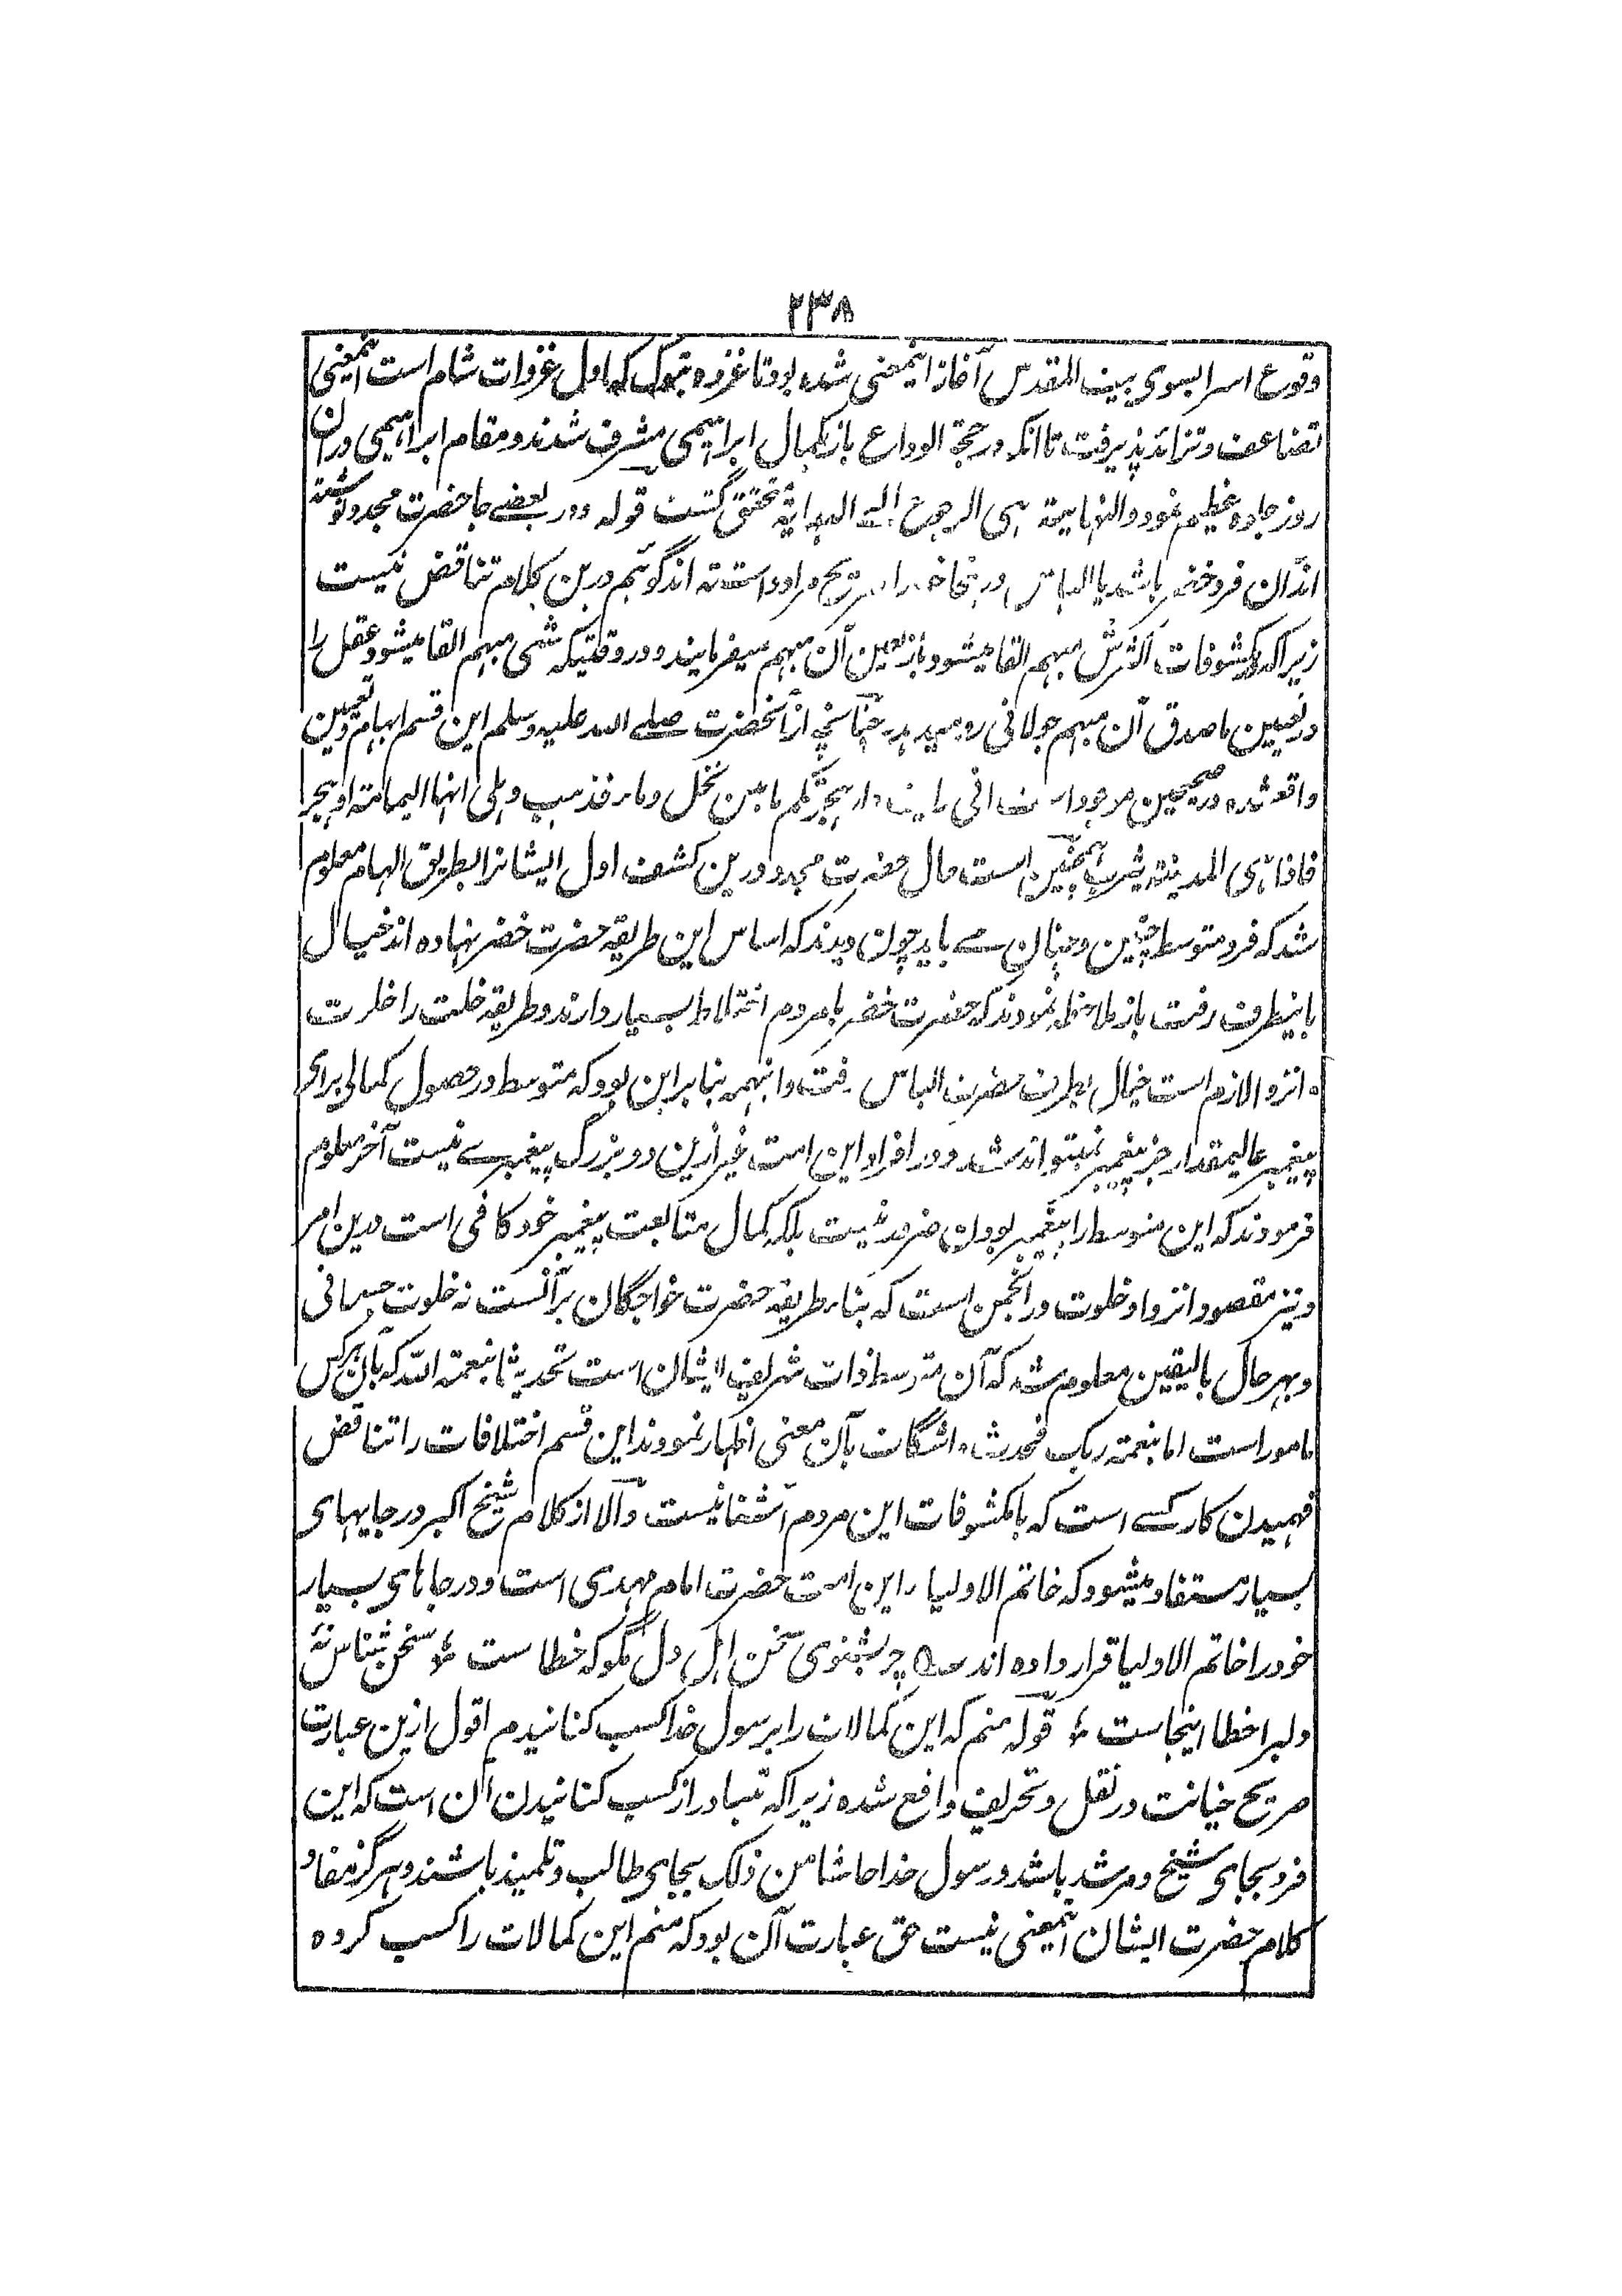 ۲۳۸
وقوع اسرا بسوی بیت المقدس آغاز اینمعنی شده بود تا غزوه تبوک که اول غزوات شام است اینمعنی
تضاعف و تزائد پذیرفت تا آنکه در حجة الوداع باز بکمال ابراهیمی مشرف شدند و مقام ابراهیمی دران
روز جلوه عظیم نمود و النهایة هی الرجوع الی البدایة متحقق گشت قوله و در بعضے جا حضرت مجدد نوشته
اند آن فرد خضر باشد یا الیاس و در بنجا خود را صریح مراد داشته اند گوئیم درین کلام تناقض نیست
زیرا که مکشوفات اکثرش مبهم القا میشود باز تعیین آن مبهم میفرمایند و در وقتیکه شئی مبهم القا میشود عقل را
در تعیین ماصدق آن مبهم جولانی رو میدهد چنانچه از آنحضرت صلے الله علیه وسلم این قسم ابهام و تعیین
واقع شده در صحیحین موجود است انی رایت دار هجرتکم ما بین نخل و ماء فذهب وهلی انها الیمامة او هجر
فاذا هی المدینة یثرب همچنین است حال حضرت مجدد درین کشف اول ایشانرا بطریق الهام معلوم
شد که فرد متوسط چنین و چنان مے باید چون دیدند که اساس این طریقه حضرت خضر نهاده اند خیال
باینطرف رفت باز ملاحظه نمودند که حضرت خضر با مردم اختلاط بسیار دارند و طریقه خلت را خلوت
و انزوا لازم است خیال بطرف حضرت الیاس رفت و اینهمه بنا بر این بود که متوسط در حصول کمالی برای
پیغمبر عالیمقدار جز پیغمبر نمیتواند شد و در افراد این امت غیر ازین دو بزرگ پیغمبرے نیست آخر معلوم
فرمودند که این متوسط را پیغمبر بودن ضرور نیست بلکه کمال متابعت پیغمبر خود کافی است درین امر
و نیز مقصود انزوا و خلوت در انجمن است که بناء طریقه حضرت خواجگان بر آنست نه خلوت جسمانی
و بهر حال بالیقین معلوم شد که آن متوسط ذات شریف ایشان است تحدیثا بنعمة الله که بآن هرکس
مامور است اما بنعمة ربک فحدث بآن معنی اظهار نمودند این قسم اختلافات را تناقض
فهمیدن کار کسے است که با مکشوفات این مردم آشنا نیست و الا از کلام شیخ اکبر در جایهای
بسیار مستفاد میشود که خاتم الاولیا راین امت حضرت امام مهدی است و در جاهای بسیار
خود را خاتم الاولیا قرار داده اند ؎ چو بشنوی سخن اهل دل مگو که خطاست ؛ سخن شناس نهٔ
دلبرا خطا اینجاست ؛ قوله منم که این کمالات را بر رسول خدا کسب کنانیدم اقول ازین عبارت
صریح خیانت در نقل و تحریف واقع شده زیرا که متبادر از کسب کنانیدن آن است که این
فرد بجای شیخ و مرشد باشد و رسول خدا حاشا من ذلک بجای طالب و تلمیذ باشند و هرگز مفاد
کلام حضرت ایشان اینمعنی نیست حق عبارت آن بود که منم این کمالات را کسب کرده